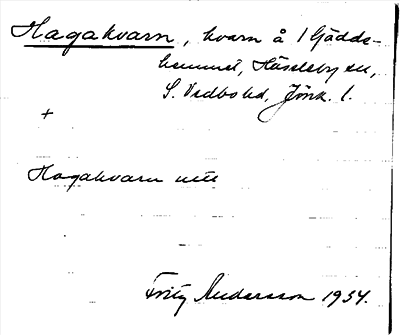 Hagakvarn, kvarn å 1 Gädds-
hemmet, Hässleby sn,
S. Vedbo hd, Jönk. l.
+
Hagakvarn
Fritz Andersson 1934.